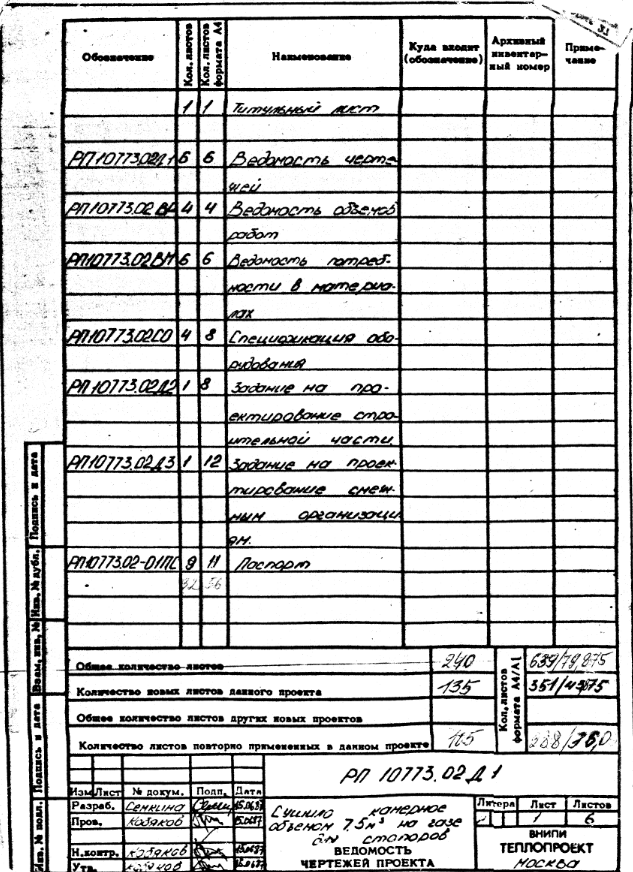 Обозначение Кол. листов Кол. листов формата А4 Наименование Куда входит (обозначение) Архивный инвентарный номер Примечание
1 1 Титульный лист
РП 10773.02Д1 6 6 Ведомость черте-
жей
РП 10773.02 ВР 4 4 Ведомость объемов
работ
РП10773.02ВМ 6 6 Ведомость потреб-
ности в материа-
лах
РП10773.02СО 4 8 Спецификация обо-
рудования
РП 10773.02Д2 1 8 Задание на про-
ектирование стро-
ительной части
РП10773.02Д3 1 12 Задание на проек-
тирование смеж-
ным организаци
ям.
РП10773.02-01ПС 9 11 Паспорт
32 56
Общее количество листов 240 639/79,875
Количество новых листов данного проекта 135 351/43,875
Общее количество листов других новых проектов
Количество листов повторно примененных в данном проекте 288/36,0
Кол. листов формата А4/А1
РП 10773.02 Д1
Изм Лист № докум. Подп. Дата
Разраб. Сенкина
Пров. Козяков
Н.контр. Козяков
Утв. Козяков
Сушило камерное
объемом 7,5м³ на газе
для стопоров
ВЕДОМОСТЬ
ЧЕРТЕЖЕЙ ПРОЕКТА
Литера Лист Листов
1 6
ВНИПИ
ТЕПЛОПРОЕКТ
Москва
Подпись и дата
Инв. № дубл.
Взам. инв. №
Подпись и дата
Инв. № подл.